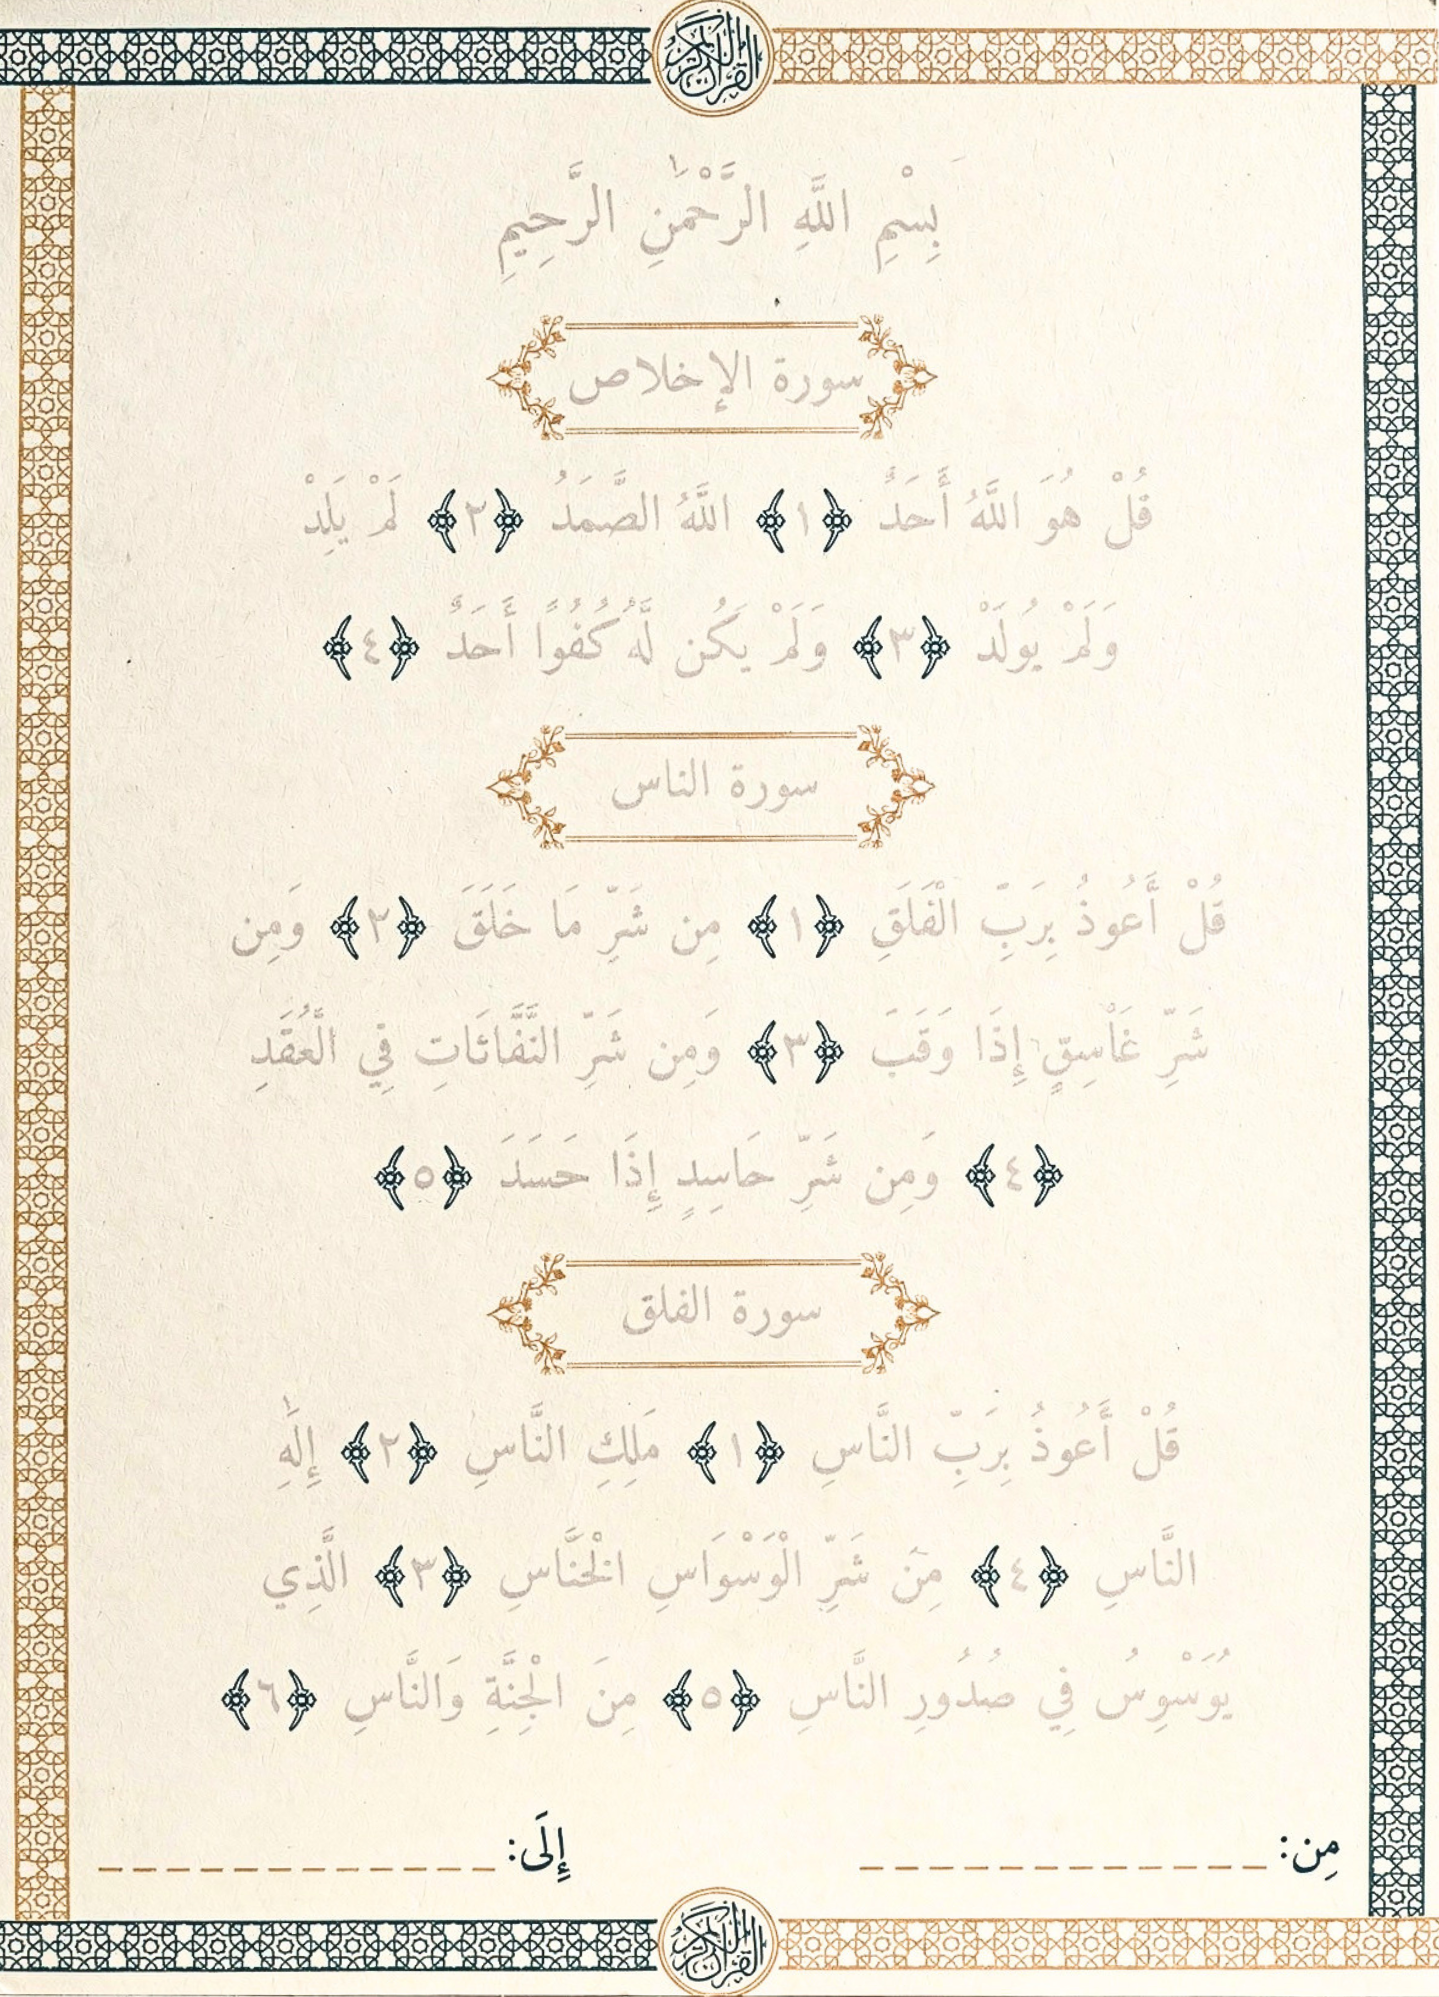 القرآن الكريم
بِسْمِ اللَّهِ الرَّحْمَٰنِ الرَّحِيمِ
سورة الإخلاص
قُلْ هُوَ اللَّهُ أَحَدٌ ﴿١﴾ اللَّهُ الصَّمَدُ ﴿٢﴾ لَمْ يَلِدْ
وَلَمْ يُولَدْ ﴿٣﴾ وَلَمْ يَكُن لَّهُ كُفُوًا أَحَدٌ ﴿٤﴾
سورة الناس
قُلْ أَعُوذُ بِرَبِّ الْفَلَقِ ﴿١﴾ مِن شَرِّ مَا خَلَقَ ﴿٢﴾ وَمِن
شَرِّ غَاسِقٍ إِذَا وَقَبَ ﴿٣﴾ وَمِن شَرِّ النَّفَّاثَاتِ فِي الْعُقَدِ
﴿٤﴾ وَمِن شَرِّ حَاسِدٍ إِذَا حَسَدَ ﴿٥﴾
سورة الفلق
قُلْ أَعُوذُ بِرَبِّ النَّاسِ ﴿١﴾ مَلِكِ النَّاسِ ﴿٢﴾ إِلَٰهِ
النَّاسِ ﴿٤﴾ مِن شَرِّ الْوَسْوَاسِ الْخَنَّاسِ ﴿٣﴾ الَّذِي
يُوَسْوِسُ فِي صُدُورِ النَّاسِ ﴿٥﴾ مِنَ الْجِنَّةِ وَالنَّاسِ ﴿٦﴾
مِن: إِلَى:
القرآن الكريم